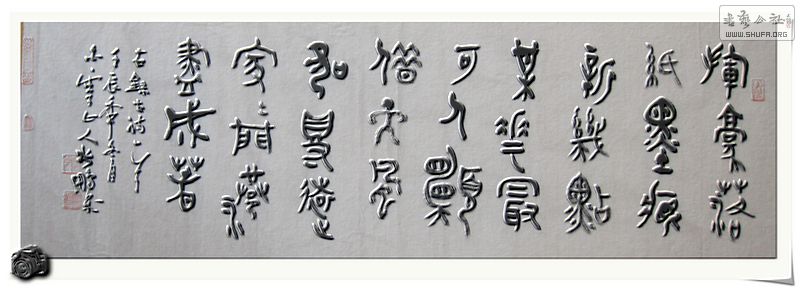 書藝公社
WWW.SHUFA.ORG
揮毫落
紙墨痕
新幾點
某華最
可人願
借天風
吹得遠
家〻門巷
盡成春
右錄古詩一首
壬辰年冬月
山人